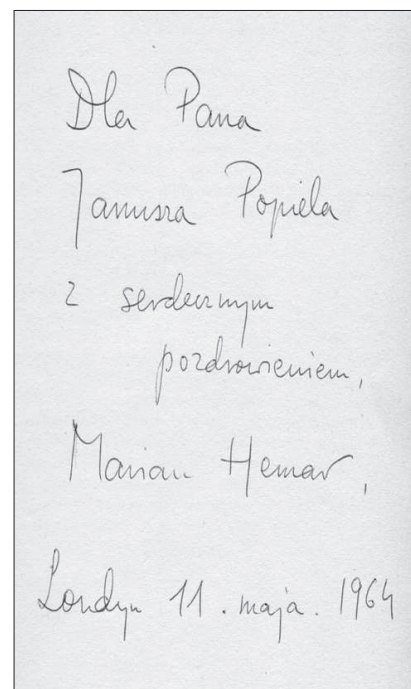 Dla Pana
Janusza Popiela
z serdecznym
pozdrowieniem,
Marian Hemar,
Londyn 11. maja. 1964